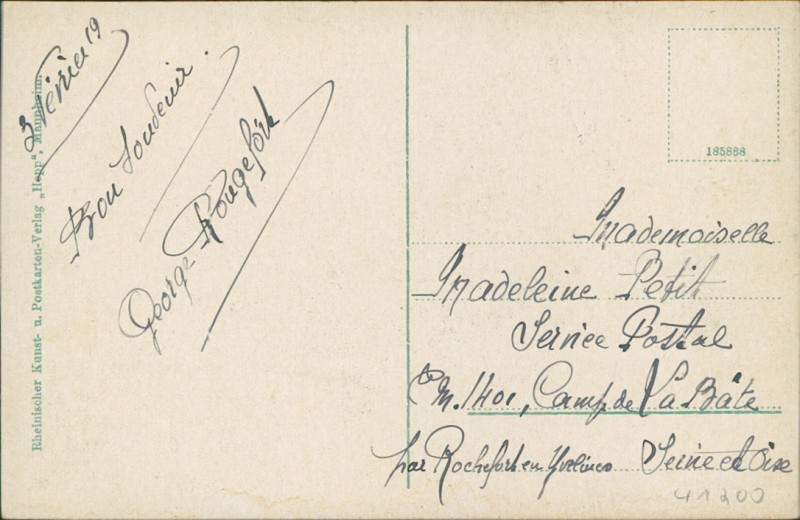 3 Février 19
Bon Souvenir.
George Rougefort
Rheinischer Kunst- u. Postkarten-Verlag „Hepp“, Mannheim.
185886
Mademoiselle
Madeleine Petit
Service Postal
M. 1401, Camp de La Bâte
par Rochefort en Yvelines Seine et Oise
41200